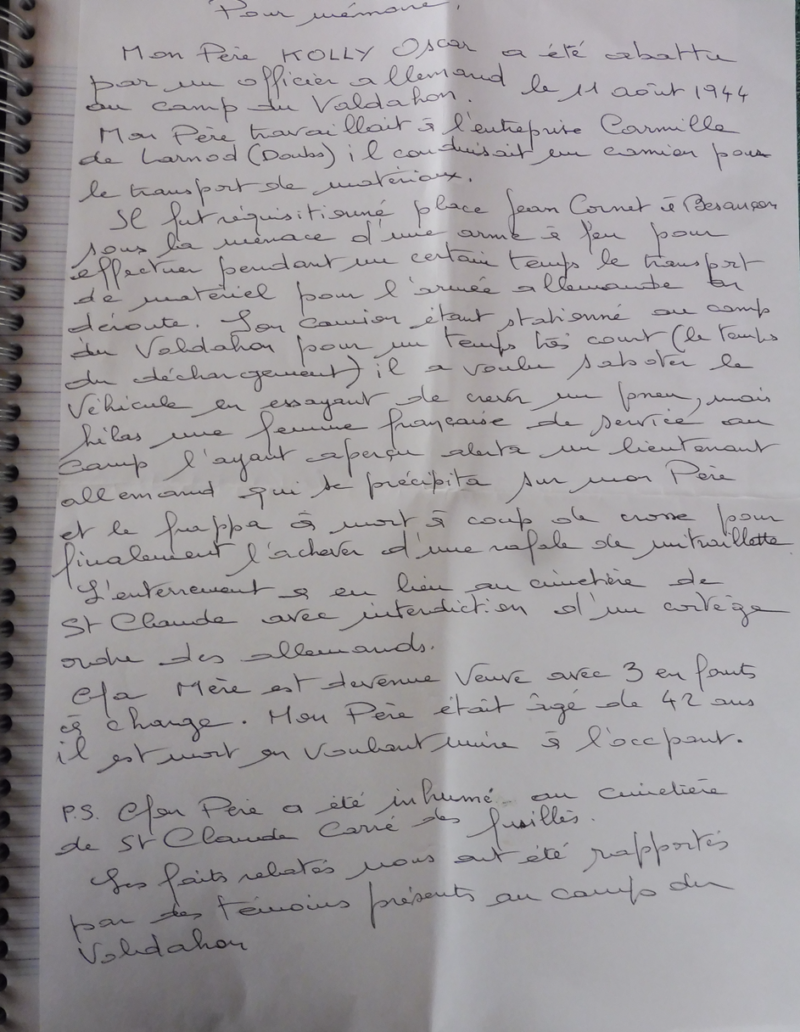 Pour mémoire,
Mon Père KOLLY Oscar a été abattu
par un officier allemand le 11 août 1944
au camp du Valdahon.
Mon Père travaillait à l'entreprise Carmille
de Larnod (Doubs) il conduisait un camion pour
le transport de matériaux.
Il fut réquisitionné place Jean Cornet à Besançon
sous la ménace d'une arme à feu pour
effectuer pendant un certain temps le transport
de matériel pour l'armée allemande en
déroute. Son camion étant stationné au camp
du Valdahon pour un temps très court (le temps
du déchargement) il a voulu saboter le
véhicule en essayant de crever un pneu, mais
hélas une femme française de service au
camp l'ayant aperçu alerta un lieutenant
allemand qui se précipita sur mon Père
et le frappa à mort à coup de crosse pour
finalement l'achever d'une rafale de mitraillette
L'enterrement a eu lieu au cimetière de
St Claude avec interdiction d'un cortège
ordre des allemands.
Ma Mère est devenue Veuve avec 3 enfants
à charge. Mon Père était âgé de 42 ans
il est mort en voulant nuire à l'occpant.
P.S. Mon Père a été inhumé au cimetière
de St Claude Carré des fusillés.
Les faits relatés nous ont été rapportés
par des témoins présents au camp du
Valdahon